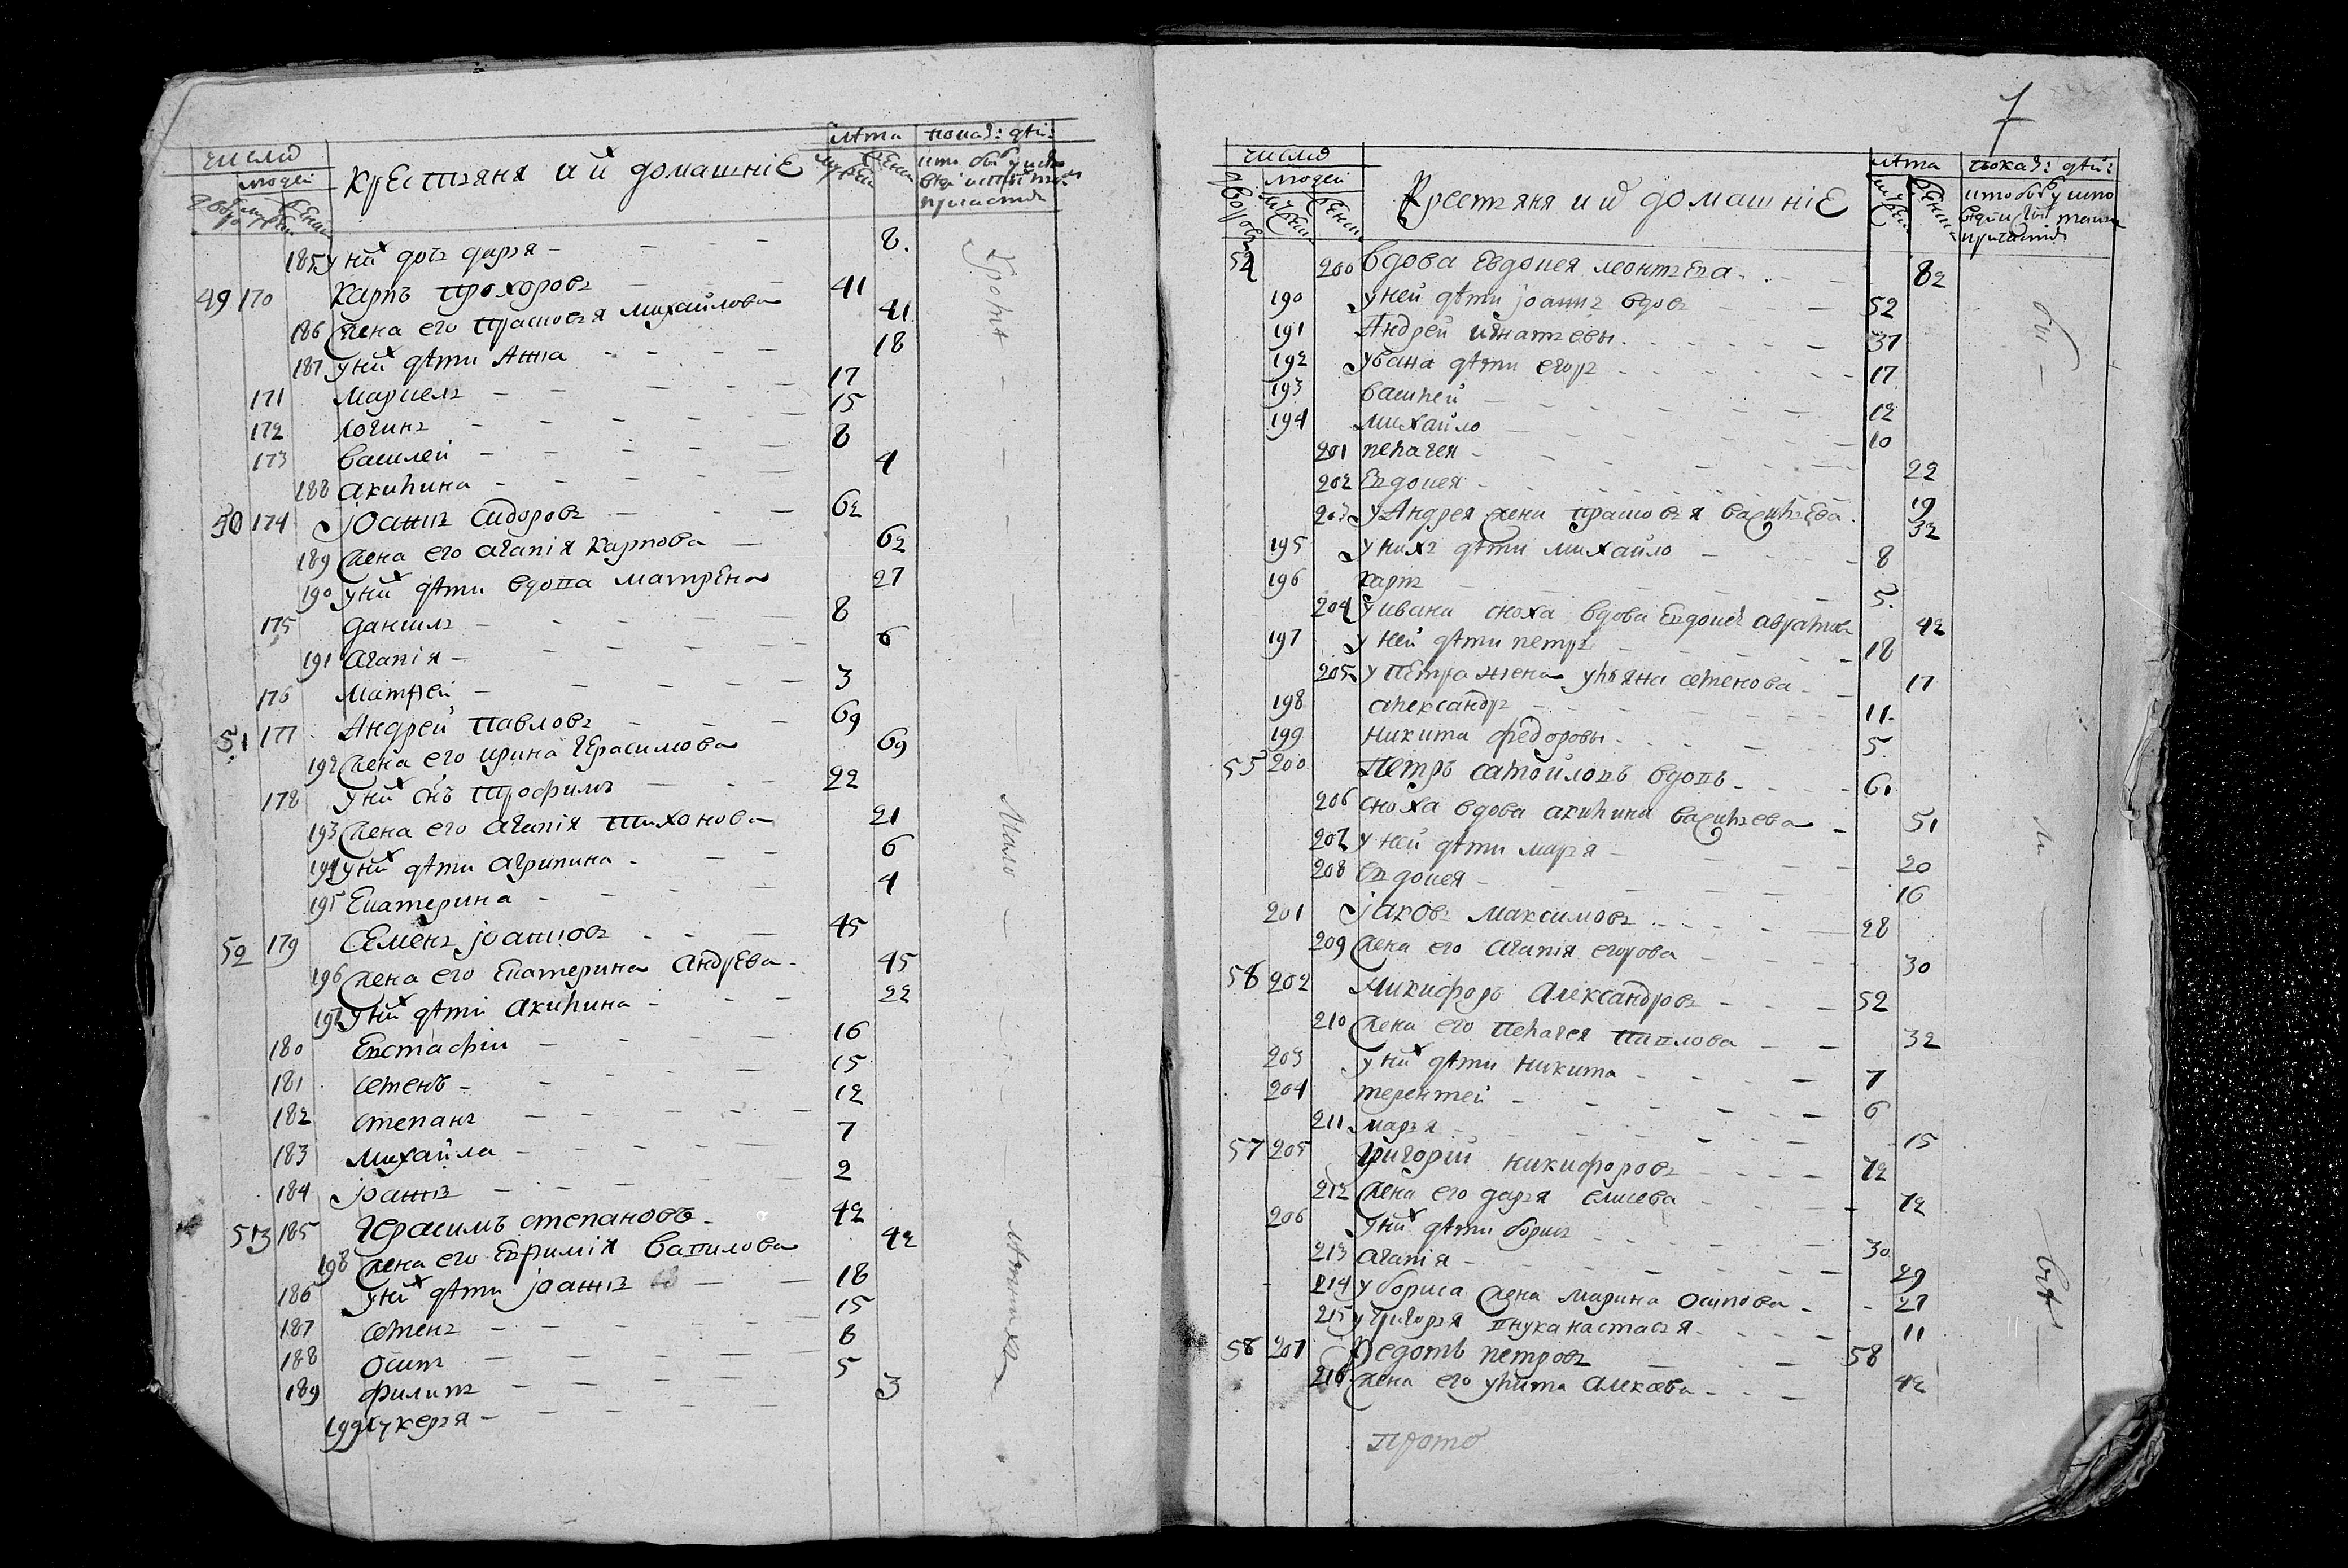 число
людей
Крестьяня и их домашніе
лѣта
показ: дѣй:
185 у них дочь дарья 8.
49 170 Карпъ прохоровъ 41
186 жена его прасковья михайлова 41
187 у них дѣти Анна 18
171 маркелъ 17
172 логинъ 15
173 василей 8
188 акилина 4
50 174 Іоаннъ Сидоровъ 62
189 жена его агапія карпова 62
190 у них дѣти вдова матрена 27
175 данилъ 8
191 агапія 6
176 матфей 3
51 177 Андрей павловъ 69
192 жена его ирина герасимова 69
178 у них снъ трофимъ 22
193 жена его агапія тихонова 21
194 у них дѣти агрипина 6
195 Екатерина 4
52 179 Семенъ іоанновъ 45
196 жена его Екатерина андрева 45
197 у них дѣти акилина 22
180 Евстафіи 16
181 семенъ 15
182 степанъ 12
183 михайла 7
184 іоаннъ 2
53 185 Герасимъ степановъ 42
198 жена его Евфимія вавилова 42
186 у них дѣти іоаннъ 18
187 семенъ 15
188 осипъ 8
189 филипъ 5
199 лукерья 3
малолѣтних
7
число
людей
дворовъ
Крестьяня и их домашніе
лѣта
показ: дѣй:
54 200 вдова Евдокея леонтьева 82
190 у ней дѣти іоаннъ вдовъ 52
191 Андрей игнатьевы 37
192 у вана дѣти егоръ 17
193 василей 12
194 михайло 10
201 пелагея 22
202 Евдокея 19
203 у Андрея жена прасковья васильева 32
195 у нихъ дѣти михайло 8
196 карпъ 5.
204 у ивана сноха вдова Евдокея аврамова 42
197 у ней дѣти петръ 18
205 у петра жена ульяна семенова 17
198 александръ 11
199 никита федоровы 5
55 200 Петръ самойловъ вдовъ 61
206 сноха вдова акилина васильева 51
207 у ней дѣти марья 20
208 Евдокея 16
201 Іаковъ максимовъ 28
209 жена его агапія егорова 30
56 202 Никифоръ александровъ 52
210 жена его пелагея павлова 32
203 у них дѣти никита 7
204 терентей 6
211 марья 15
57 205 Григорій никифоровъ 72
212 жена его дарья елисева 72
206 у них дѣти борисъ 30
213 агапія 29
214 у бориса жена марина осипова 27
215 у григорья внука настасья 11
58 207 Федотъ петровъ 58
216 жена его улита алексѣва 42